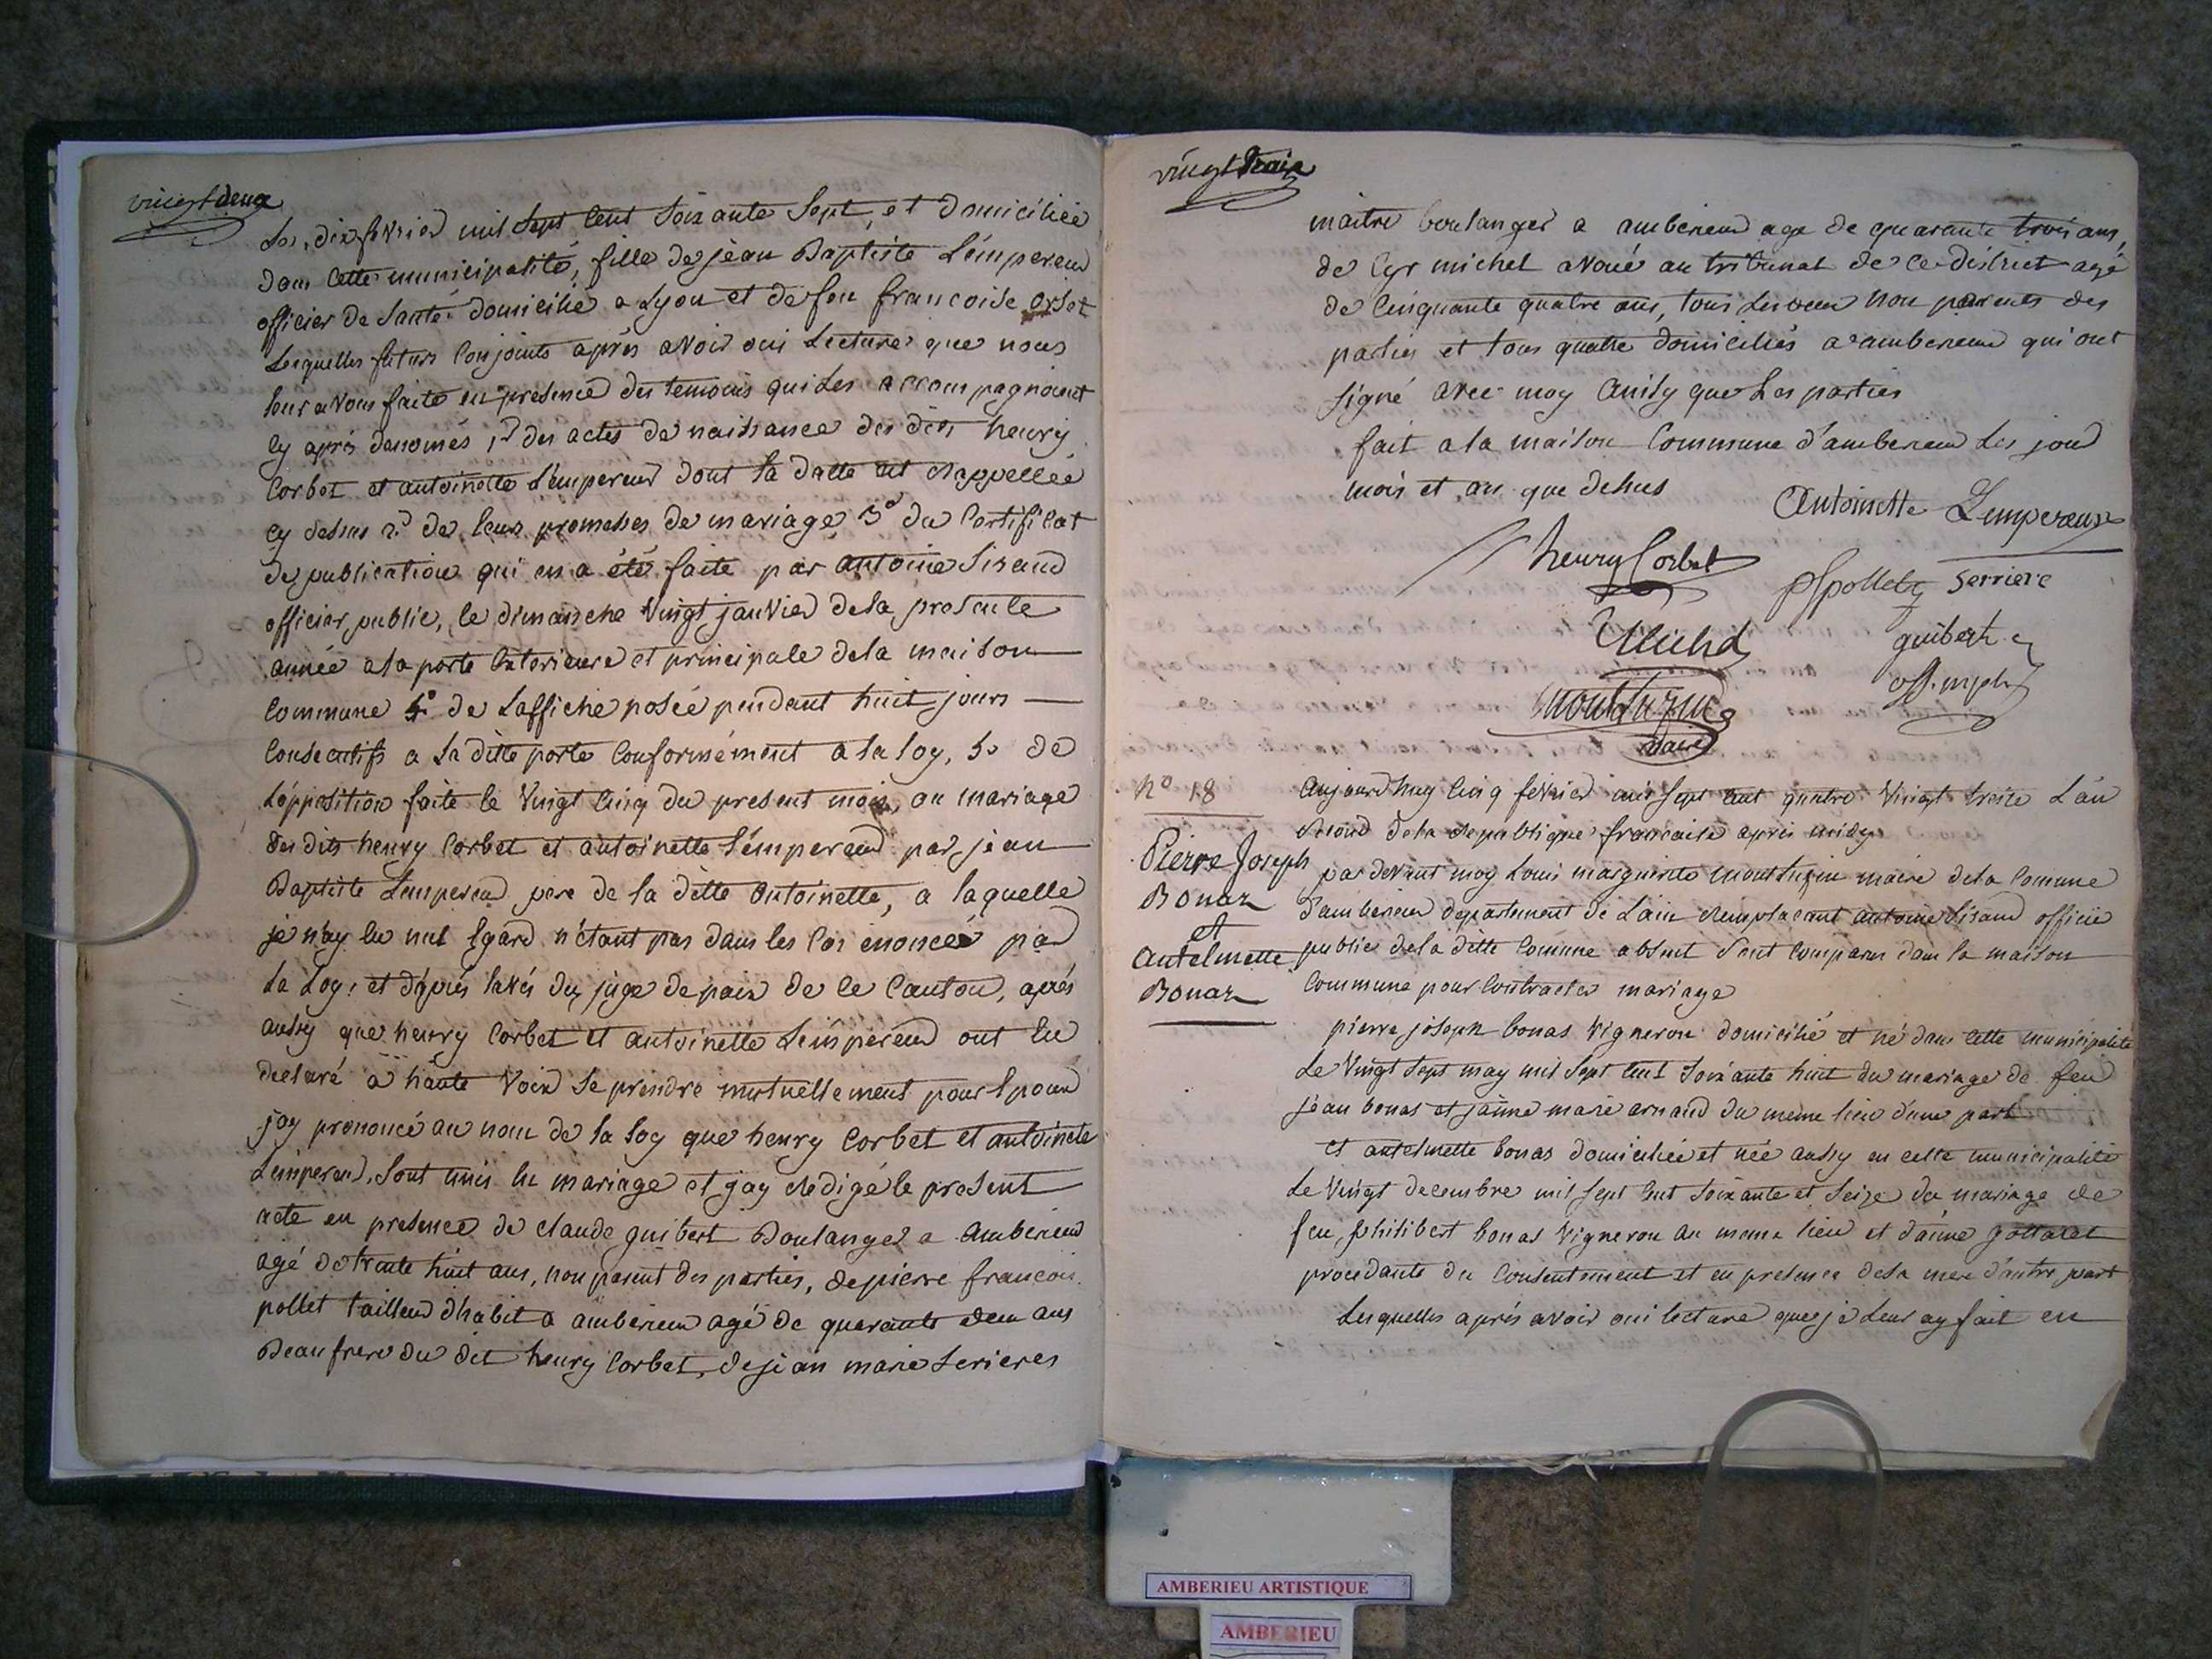 vingt deux
Les dix fevrier mil sept cent soixante sept, et domiciliée
dans cette municipalité, fille de jean Baptiste Lémpereur
officier de santé domicilié a Lyon et de feu francoise orset
Lesquelles futurs conjoints aprés avoir oui Lecture que nous
leur avons faite en presence des temoins qui les accompagnoient
cy aprés denomés, 1° des actes de naissance des dits henry
Corbet et antoinette Lémpereur dont la datte est rappellée
cy dessus 2° de leurs promesses de mariage 3° du Certificat
de publication qui en a été faite par antoine Sirand
officier public, le dimanche vingt janvier de la presente
année a la porte Exterieure et principale de la maison
commune 4° de Laffiche posée pendant huit jours
consecutifs a la ditte porte conformément a la loy, 5° de
Lópposition faite le vingt cinq du present mois, au mariage
des dits henry Corbet et antoinette Lémpereur par jean
Baptiste Lempereur pere de la ditte antoinette, a laquelle
je náy eu nul Egard n'étant pas dans les cas enoncés par
La Loy, et dáprés lavis du juge de paix de ce Canton, aprés
aussy que henry Corbet et antoinette Lémpereur ont Eu
declaré a haute voix se prendre mutuellement pour Epoux
jay prononcé au nom de la loy que henry Corbet et antoinete
Lémpereur, sont unis en mariage et jay redigé le present
acte en presence de claude guibert Boulanger a Amberieu
agé de trente huit ans, non parent des parties, de pierre francois
pollet tailleur d'habit a amberieu agé de quarante deux ans
Beaufrere du dit henry Corbet, de jean marie serieres
vingt trois
maitre boulanger a amberieux age de quarante trois ans,
de Cyr michel avoué au tribunal de ce district agé
de cinquante quatre ans, tous les deux non parents des
parties et tous quatre domiciliés a amberieux qui ont
signé avec moy ainsy que Les parties
fait a la maison commune d'amberieux Les jour
mois et an que dessus
Antoinette Lempereur
henry Corbet
pfpollet serriere
Michel
guibert
off. mpl
montluzin
maire
N° 18
Pierre Joseph
Bonaz
et
Antelmette
Bonaz
Aujourdhuy cinq fevrier mil sept cent quatre vingt treize L'an
second de la republique francaise apres midy
par devant moy Louis marguerite montluzin maire de la Comune
d'amberieu departement de Láin remplacant antoine Sirand officié
public de la ditte Comune absent sont comparus dans la maison
commune pour contracter mariage
pierre joseph bonas vigneron domicilié et né dans cette municipalité
Le vingt sept may mil sept cent soixante huit du mariage de feu
jean bonas et jeanne marie arnaud du meme lieu d'une part
et antelmette bonas domiciliée et née aussy en cette municipalité
Le vingt decembre mil sept cent soixante et seize du mariage de
feu philibert bonas vigneron au meme lieu et d'anne gottaret
procedante du consentement et en presence de sa mere d'autre part
Lesquelles aprés avoir oui lecture que je Leur ay fait en
AMBERIEU ARTISTIQUE
AMBERIEU